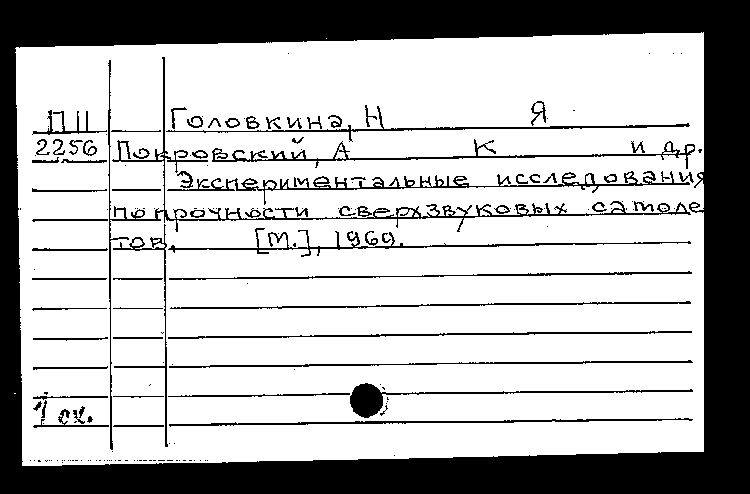 П II Головкина, Н Я
2256 Покровский, А К и др.
Экспериментальные исследования
по прочности сверхзвуковых самоле
тов. [М.], 1969.
1 ох.